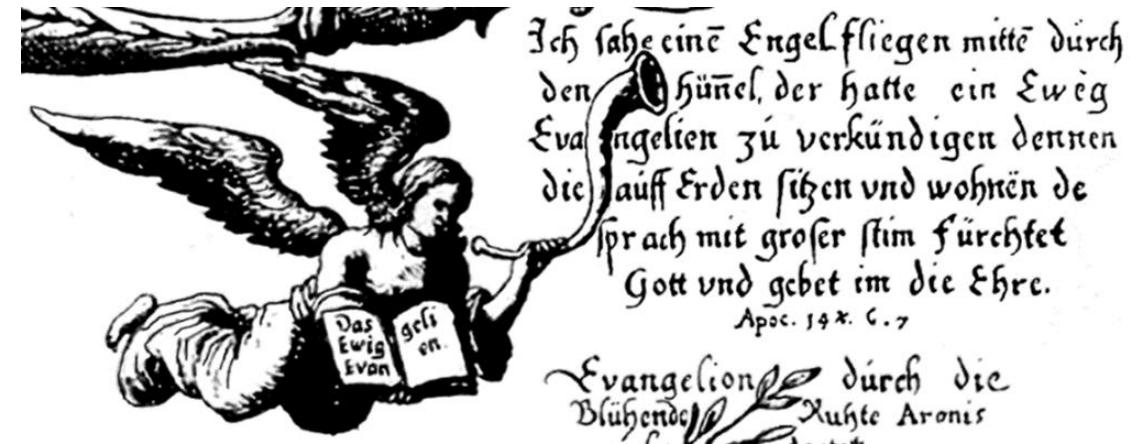 Ich sahe einē Engel fliegen mittē dúrch
den hūn̄el, der hatte ein Ewèg
Evangelien zú verkúndigen dennen
die auff Erden sitzen vnd wohnën de
sprach mit groser stim fúrchtet
Gott vnd gebet im die Ehre.
Apoc. 14 ẋ. 6.7
Das
Ewig
Evan
geli
on.
Evangelion dúrch die
Blúhende Ruhte Aronis